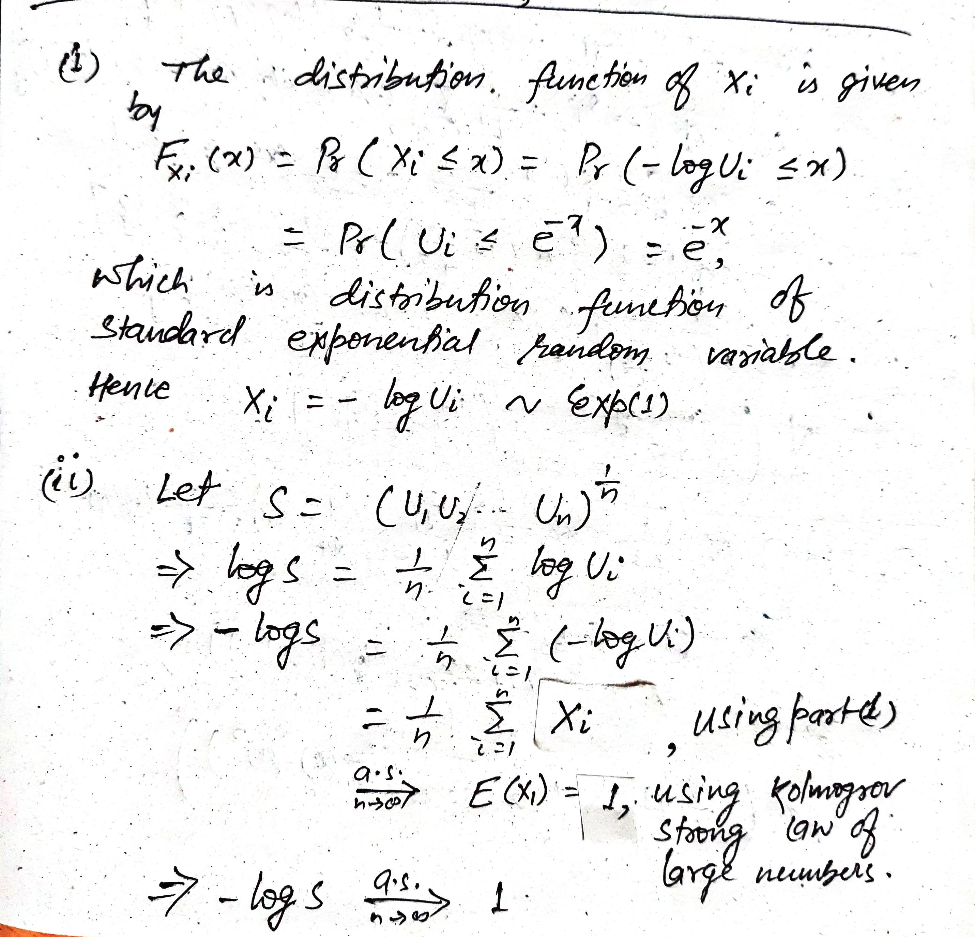 (i) The distribution function of Xᵢ is given
by
F_{Xᵢ}(x) = Pr(Xᵢ ≤ x) = Pr(-log Uᵢ ≤ x)
= Pr(Uᵢ ≤ e^{-x}) = e^{-x},
which is distribution function of
Standard exponential random variable.
Hence Xᵢ = - log Uᵢ ~ Exp(1)
(ii) Let S = (U₁U₂ ... Uₙ)^{1/n}
⇒ log S = 1/n Σ_{i=1}^{n} log Uᵢ
⇒ - log S = 1/n Σ_{i=1}^{n} (-log Uᵢ)
= 1/n Σ_{i=1}^{n} Xᵢ , using part(i)
a.s. →_{n→∞} E(X₁) = 1, using Kolmogrov
strong law of
large numbers.
⇒ - log S a.s. →_{n→∞} 1.